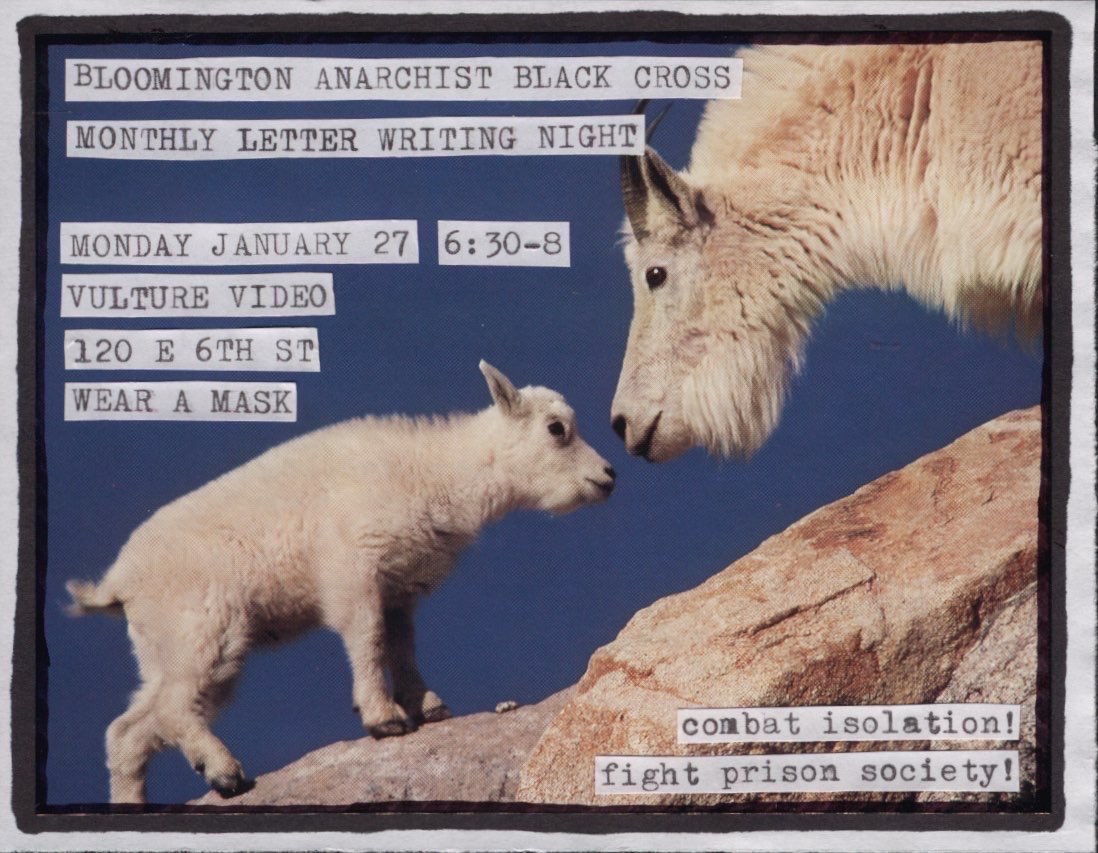 BLOOMINGTON ANARCHIST BLACK CROSS
MONTHLY LETTER WRITING NIGHT
MONDAY JANUARY 27 6:30-8
VULTURE VIDEO
120 E 6TH ST
WEAR A MASK
combat isolation!
fight prison society!